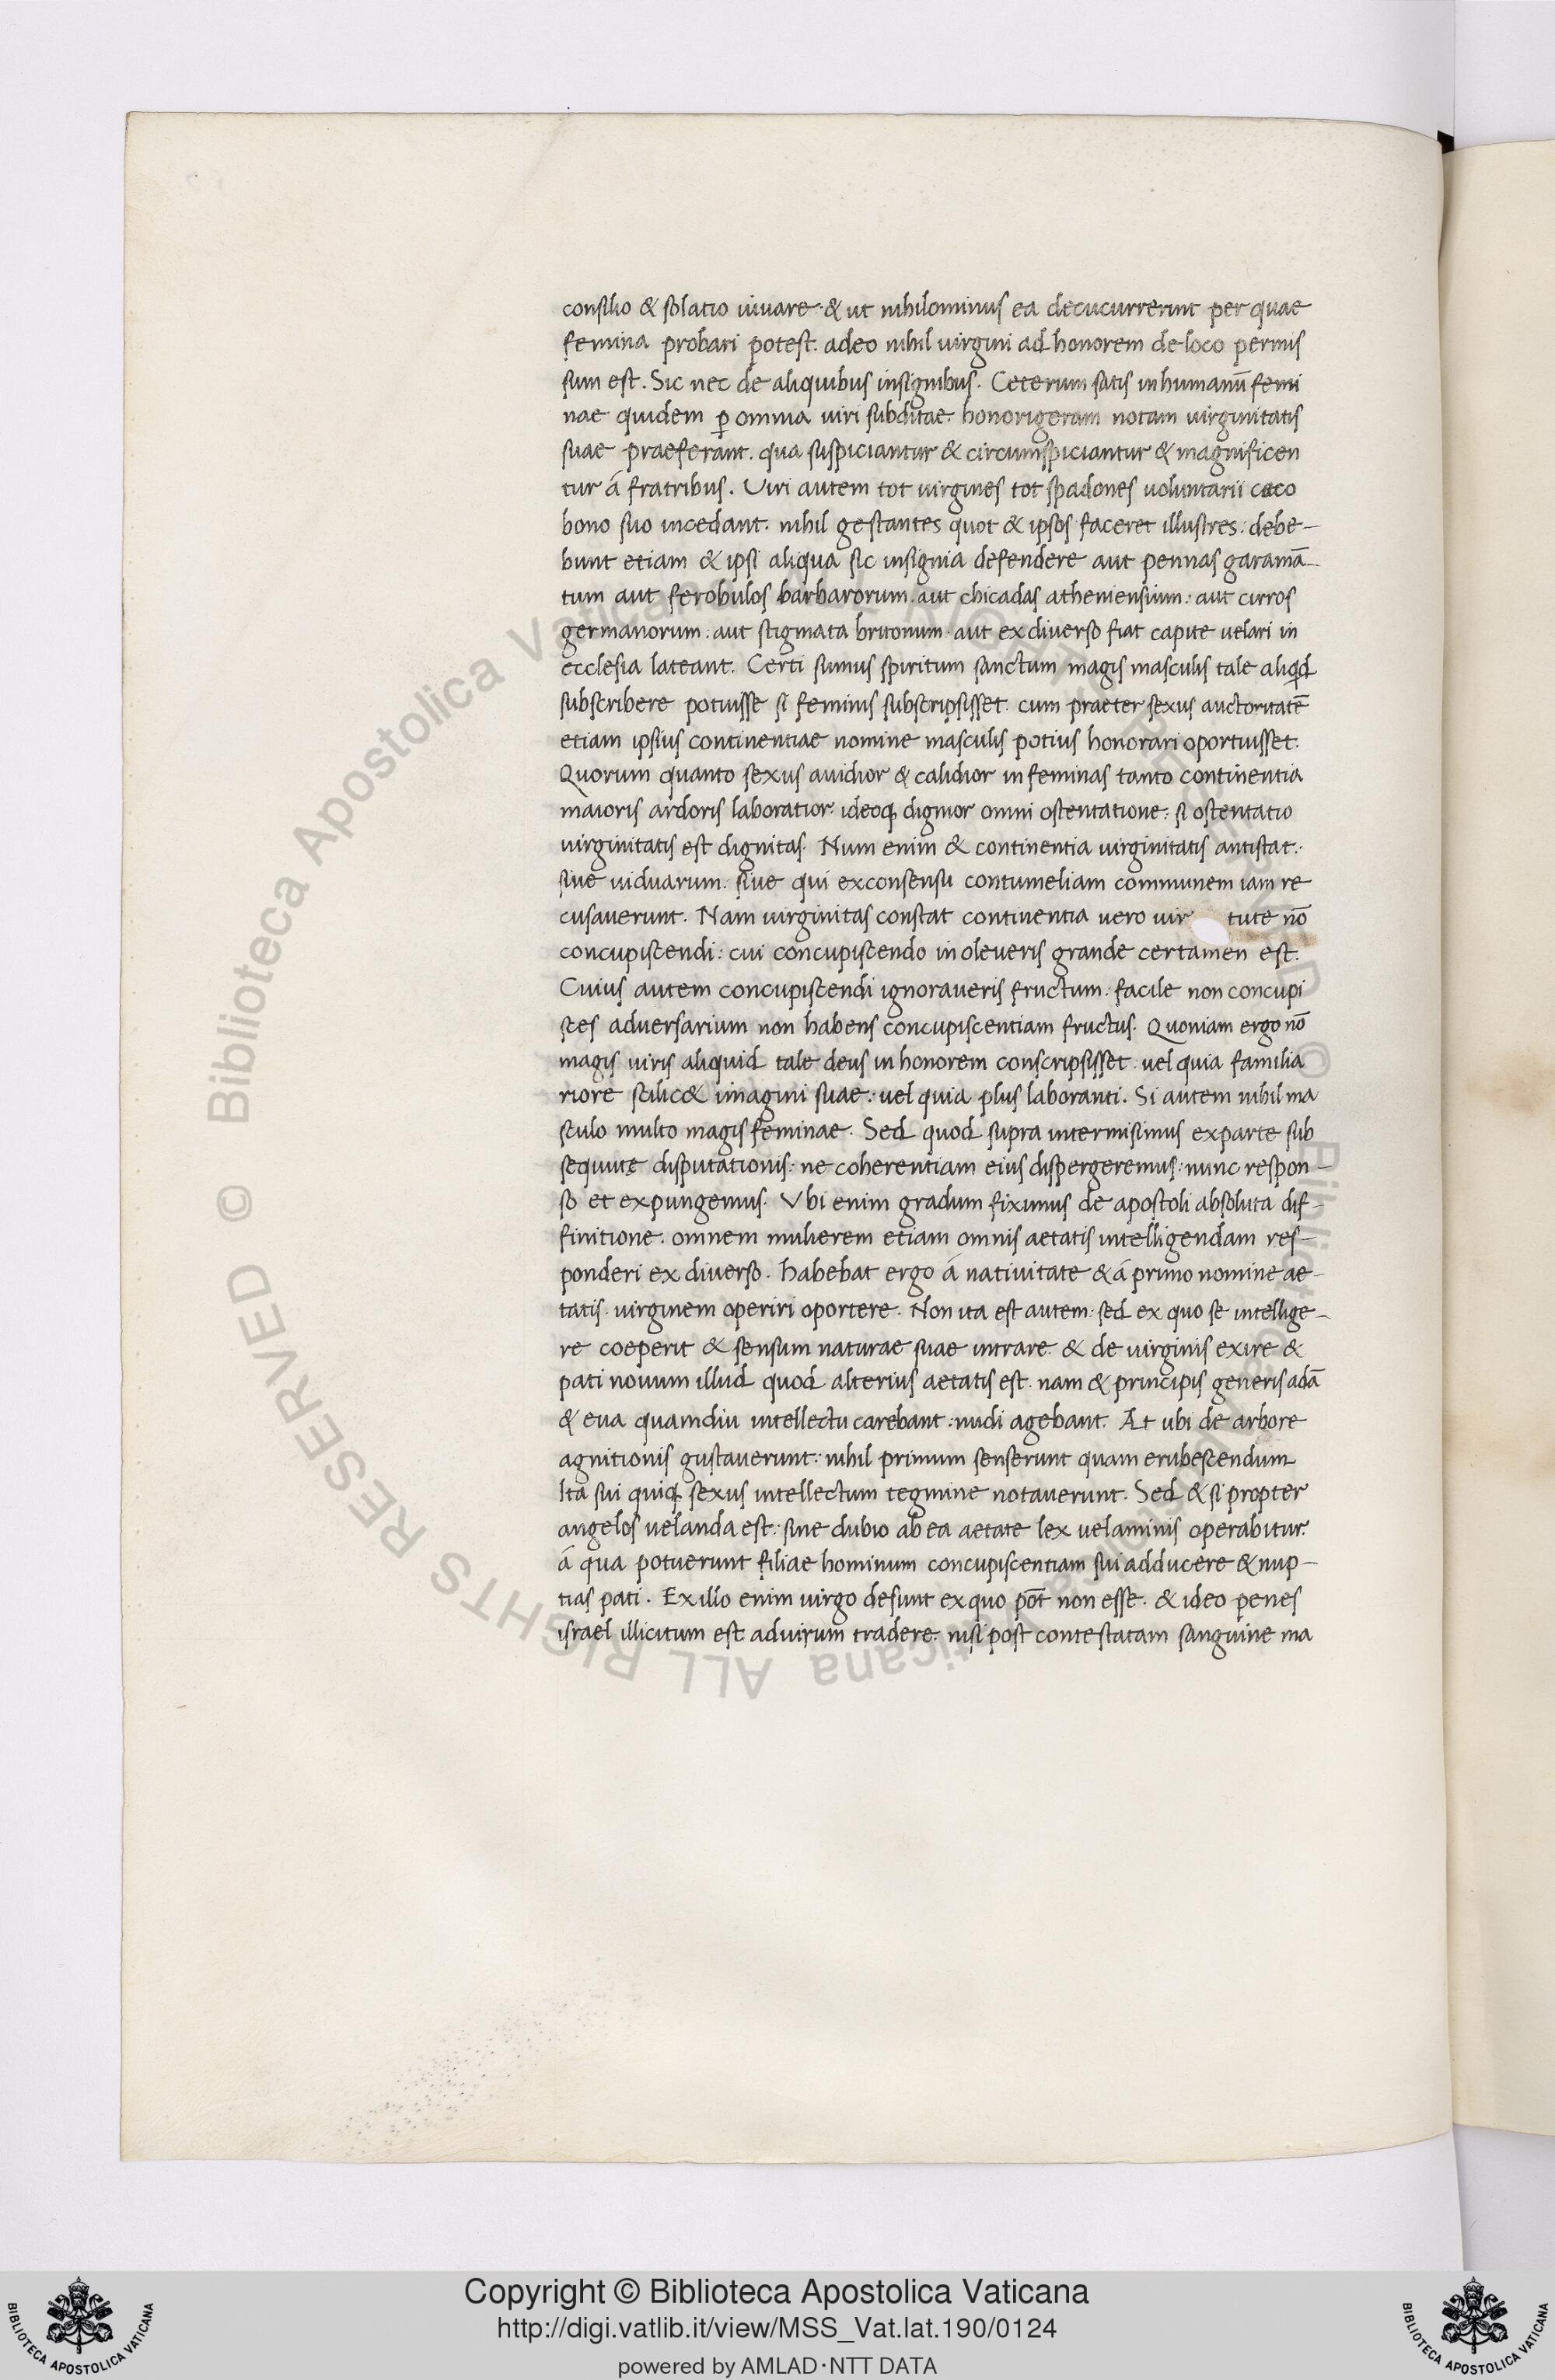 consilio & solatio iuvare · & ut nihilominus ea decucurrerint per quae
femina probari potest. adeo nihil virgini ad honorem de loco permis
sum est. Sic nec de aliquibus insignibus. Ceterum satis inhumanū femi
nae quidem ꝑ omnia viri subditae. honorigeram notam virginitatis
suae praeferant. qua suspiciantur & circumspiciantur & magnificen
tur á fratribus. Viri autem tot virgines tot spadones voluntarii caeco
bono suo incedant. nihil gestantes quot & ipsos faceret illustres: debe-
bunt etiam & ipsi aliqua sic insignia defendere aut pennas garamā-
tum aut ferobulos barbarorum. aut chicadas atheniensium: aut cirros
germanorum: aut stigmata britonum. aut ex diverso fiat capite velari in
ecclesia lateant. Certi sumus spiritum sanctum magis masculis tale aliqd
subscribere potuisse si feminis subscripsisset. cum praeter sexus auctoritatē
etiam ipsius continentiae nomine masculis potius honorari oportuisset.
Quorum quanto sexus avidior & calidior in feminas tanto continentia
maioris ardoris laboratior. ideoq, dignior omni ostentatione: si ostentatio
virginitatis est dignitas. Num enim & continentia virginitatis antistat.
sive viduarum. sive qui ex consensu contumeliam communem iam re
cusaverunt. Nam virginitas constat continentia vero vir tute nō
concupiscendi: cui concupiscendo inoleveris grande certamen est.
Cuius autem concupiscendi ignoraveris fructum: facile non concupi
sces adversarium non habens concupiscentiam fructus. Quoniam ergo nō
magis viris aliquid tale deus in honorem conscripsisset. vel quia familia
riore scilic& imagini suae: vel quia plus laboranti. Si autem nihil ma
sculo multo magis feminae. Sed quod supra intermisimus ex parte sub
sequutę disputationis: ne coherentiam eius dispergeremus: nunc respon-
so et expungemus. Ubi enim gradum fiximus de apostoli absoluta dif-
finitione. omnem mulierem etiam omnis aetatis intelligendam res-
ponderi ex diverso. habebat ergo á nativitate & á primo nomine ae-
tatis. virginem operiri oportere. Non ita est autem: sed ex quo se intellige-
re coeperit & sensum naturae suae intrare. & de virginis exire &
pati novum illud quod alterius aetatis est. nam & principis generis adā
& eva quamdiu intellectu carebant: nudi agebant. At ubi de arbore
agnitionis gustaverunt: nihil primum senserunt quam erubescendum
Ita sui quiq, sexus intellectum tegmine notaverunt. Sed & si propter
angelos velanda est: sine dubio ab ea aetate lex velaminis operabitur.
á qua potuerunt filiae hominum concupiscentiam sui adducere & nup-
tias pati. Ex illo enim virgo desunt ex quo pōt non esse. & ideo penes
israel illicitum est ad virum tradere. nisi post contestatam sanguine ma
© Biblioteca Apostolica Vaticana ALL RIGHTS RESERVED
Copyright © Biblioteca Apostolica Vaticana
http://digi.vatlib.it/view/MSS_Vat.lat.190/0124
powered by AMLAD·NTT DATA
BIBLIOTECA APOSTOLICA VATICANA
BIBLIOTECA APOSTOLICA VATICANA